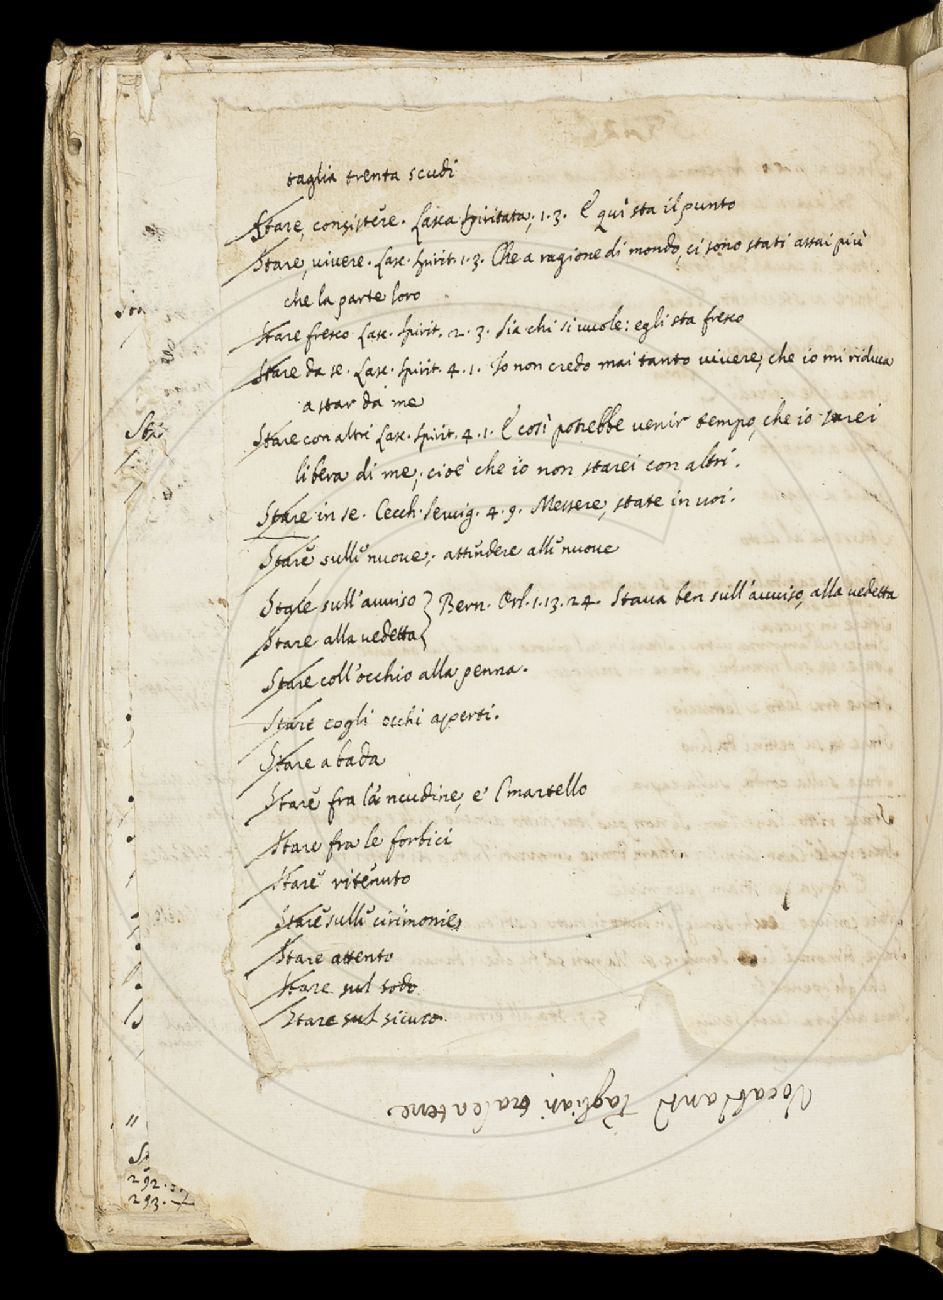 taglia trenta scudi
Stare, consistere. Lasca Spiritata, 1. 3. E qui sta il punto
Stare, vivere. Lasc. Spirit. 1. 3. Che a ragione di mondo, ci sono stati assai più
che la parte loro
Stare fresco Lasc. Spirit. 2. 3. Sia chi si vuole: egli sta fresco
Stare da se. Lasc. Spirit. 4. 1. Io non credo mai tanto vivere, che io mi riduca
a star da me
Stare con altri Lasc. Spirit. 4. 1. E così potrebbe venir tempo, che io starei
libera di me, cioè che io non starei con altri.
Stare in se. Cecch. Servig. 4. 9. Messere, state in voi.
Stare sulle nuove, attendere alle nuove
Stare sull'avviso } Bern. Orl. 1. 13. 24. Stava ben sull'avviso, alla vedetta
Stare alla vedetta }
Stare coll'occhio alla penna.
Stare cogli occhi aperti.
Stare a bada
Stare fra la 'ncudine, e 'l martello
Stare fra le forbici
Stare ritenuto
Stare sulle cirimonie
Stare attento
Stare sul sodo
Stare sul sicuro
292.
293.